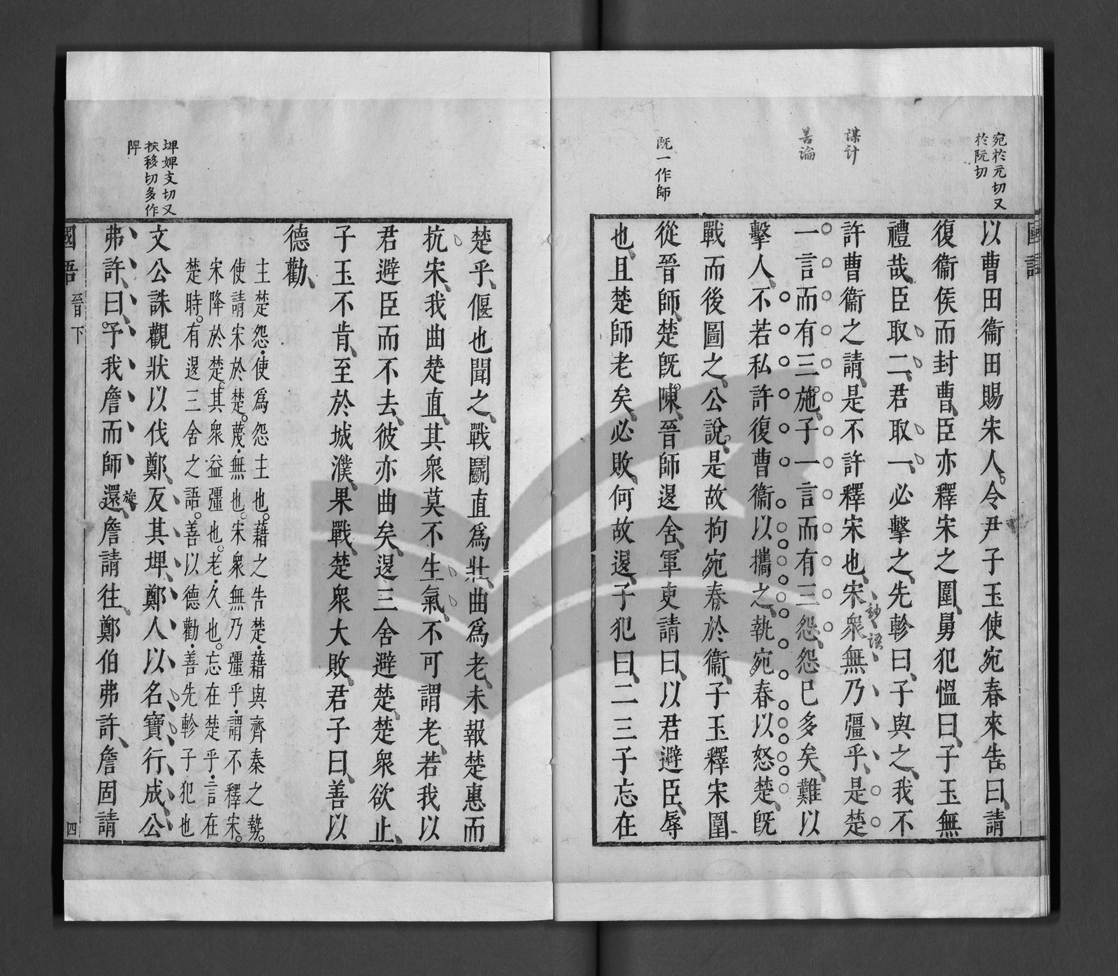 宛於元切又
於阮切
謀計
善論
既一作師
國語
以曹田衞田賜宋人令尹子玉使宛春來告曰請
復衞侯而封曹臣亦釋宋之圍舅犯慍曰子玉無
禮哉臣取二君取一必擊之先軫曰子與之我不
許曹衞之請是不許釋宋也宋衆無乃彊乎是楚
妙語
一言而有三施子一言而有三怨怨已多矣難以
擊人不若私許復曹衞以攜之執宛春以怒楚旣
戰而後圖之公說是故拘宛春於衞子玉釋宋圍
從晉師楚旣陳晉師退舍軍吏請曰以君避臣辱
也且楚師老矣必敗何故退子犯曰二三子忘在
楚乎偃也聞之戰鬭直爲壯曲爲老未報楚惠而
抗宋我曲楚直其衆莫不生氣不可謂老若我以
君避臣而不去彼亦曲矣退三舍避楚楚衆欲止
子玉不肯至於城濮果戰楚衆大敗君子曰善以
德勸
主楚怨使爲怨主也藉之告楚藉與齊秦之勢
使請宋於楚蔑無也宋衆無乃彊乎謂不釋宋
宋降於楚其衆益彊也老久也忘在楚乎言在
楚時有退三舍之語善以德勸善先軫子犯也
埤婢支切又
扶移切多作
陴
文公誅觀狀以伐鄭反其埤鄭人以名寶行成公
弗許曰予我詹而師還詹請往鄭伯弗許詹固請
旋
國語
晉下
四